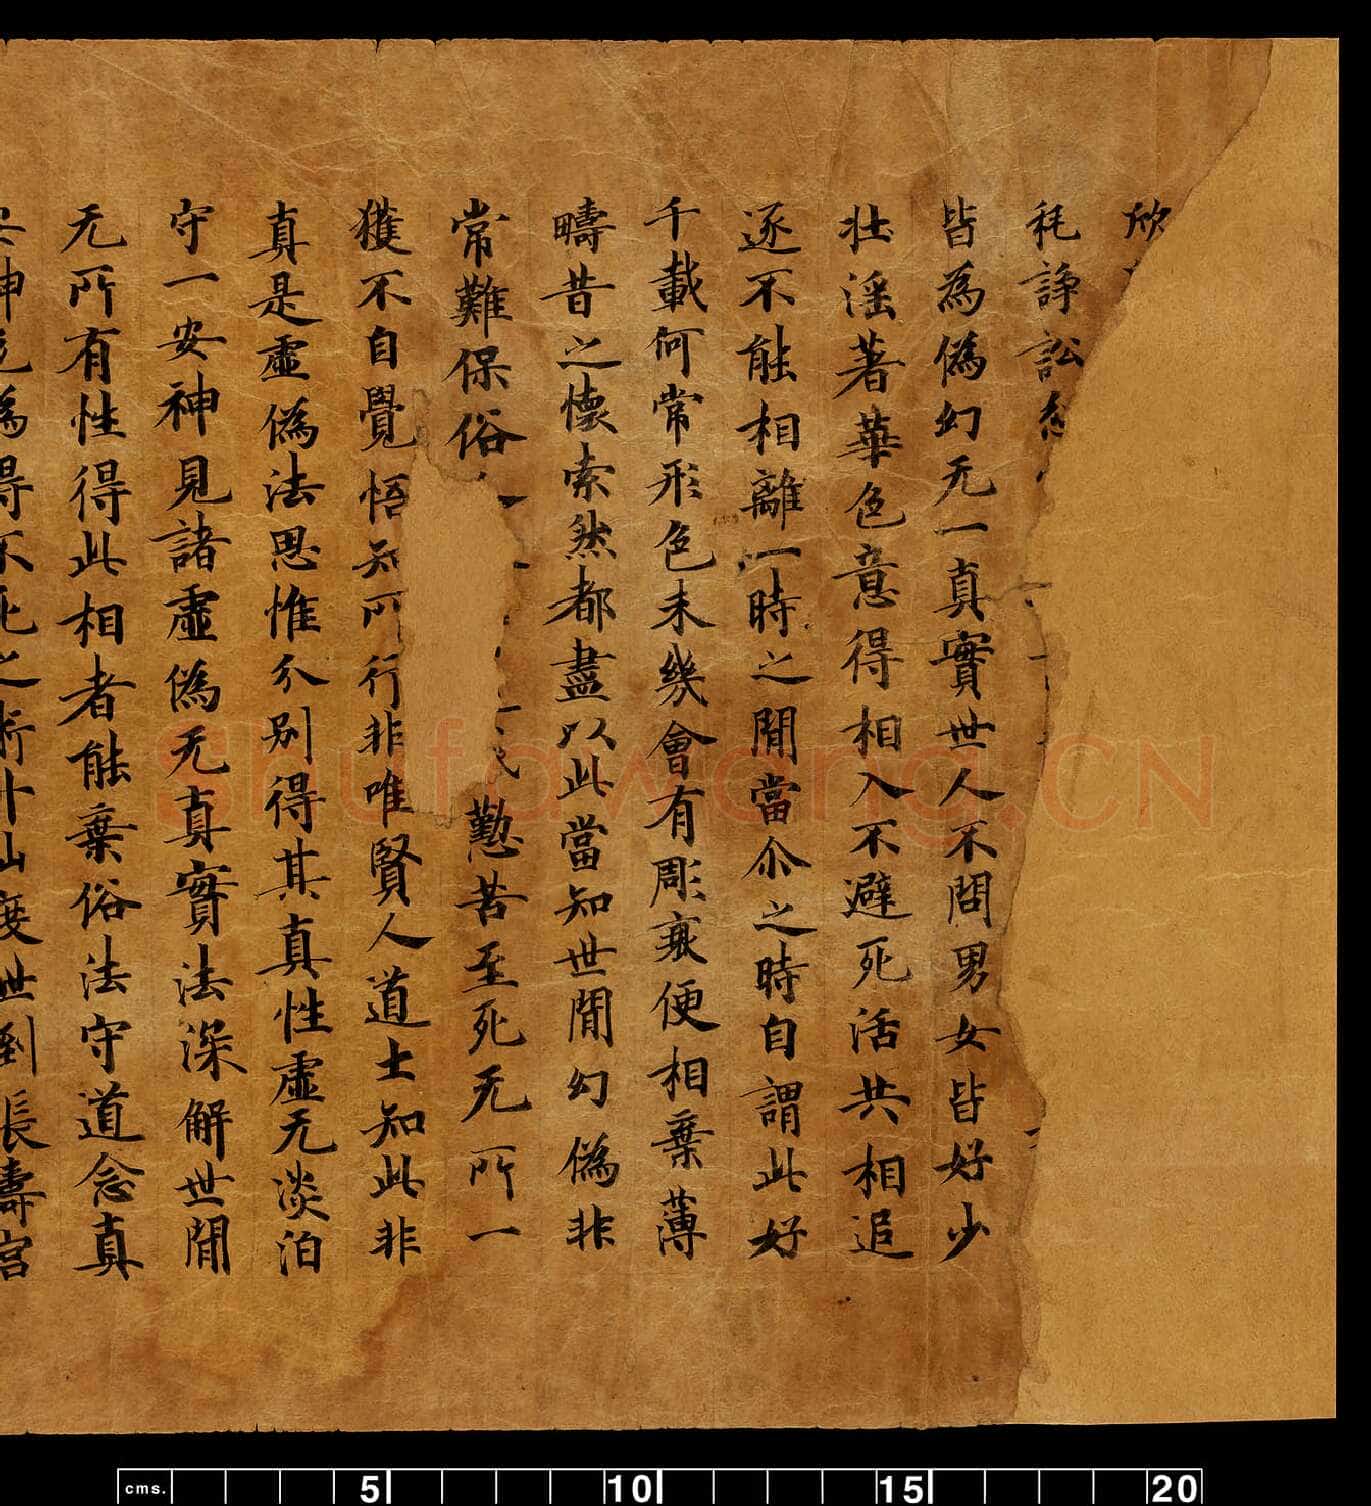 欣
秏諍訟
皆為偽幻无一真實世人不問男女皆好少
壮滛著華色意得相入不避死活共相追
逐不能相離一時之閒當尒之時自謂此好
千載何常形色未幾會有彫衰便相棄薄
疇昔之懷索然都盡以此當知世閒幻偽非
常難保俗勤苦至死无所一
獲不自覺悟知所行非唯賢人道士知此非
真是虛偽法思惟分別得其真性虛无淡泊
守一安神見諸虛偽无真實法深解世閒
无所有性得此相者能棄俗法守道念真
神為得不死之術升山度世到長壽宮
shufawang.CN
cms. 5 10 15 20